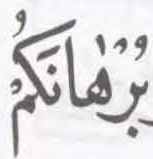 بُرْهٰانَكُمْ